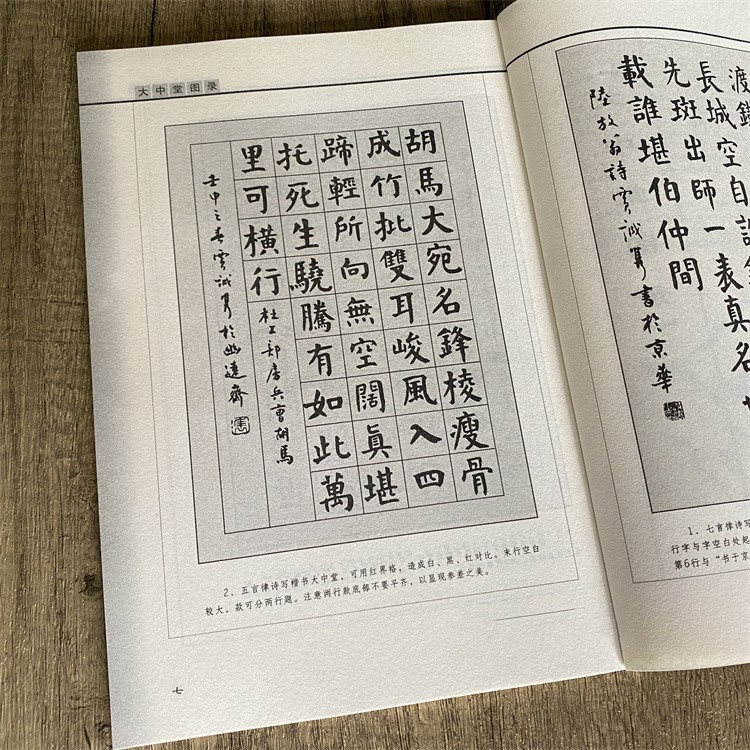 大中堂图录
胡馬大宛名鋒棱瘦骨
成竹批雙耳峻風入四
蹄輕所向無空闊真堪
托死生驍騰有如此萬
里可橫行
杜工部房兵曹胡馬
壬申之春雲誠於幽達齋
2. 五言律诗写楷书大中堂，可用红界格，造成白、黑、红对比。末行空白
较大，款可分两行题。注意两行款底部不要平齐，以显现参差之美。
七
渡鐵
長城空自許
先斑出師一表真名
載誰堪伯仲間
陸放翁詩雲誠書於京華
1. 七言律诗写
行字与字空白处起
第6行与“书于京